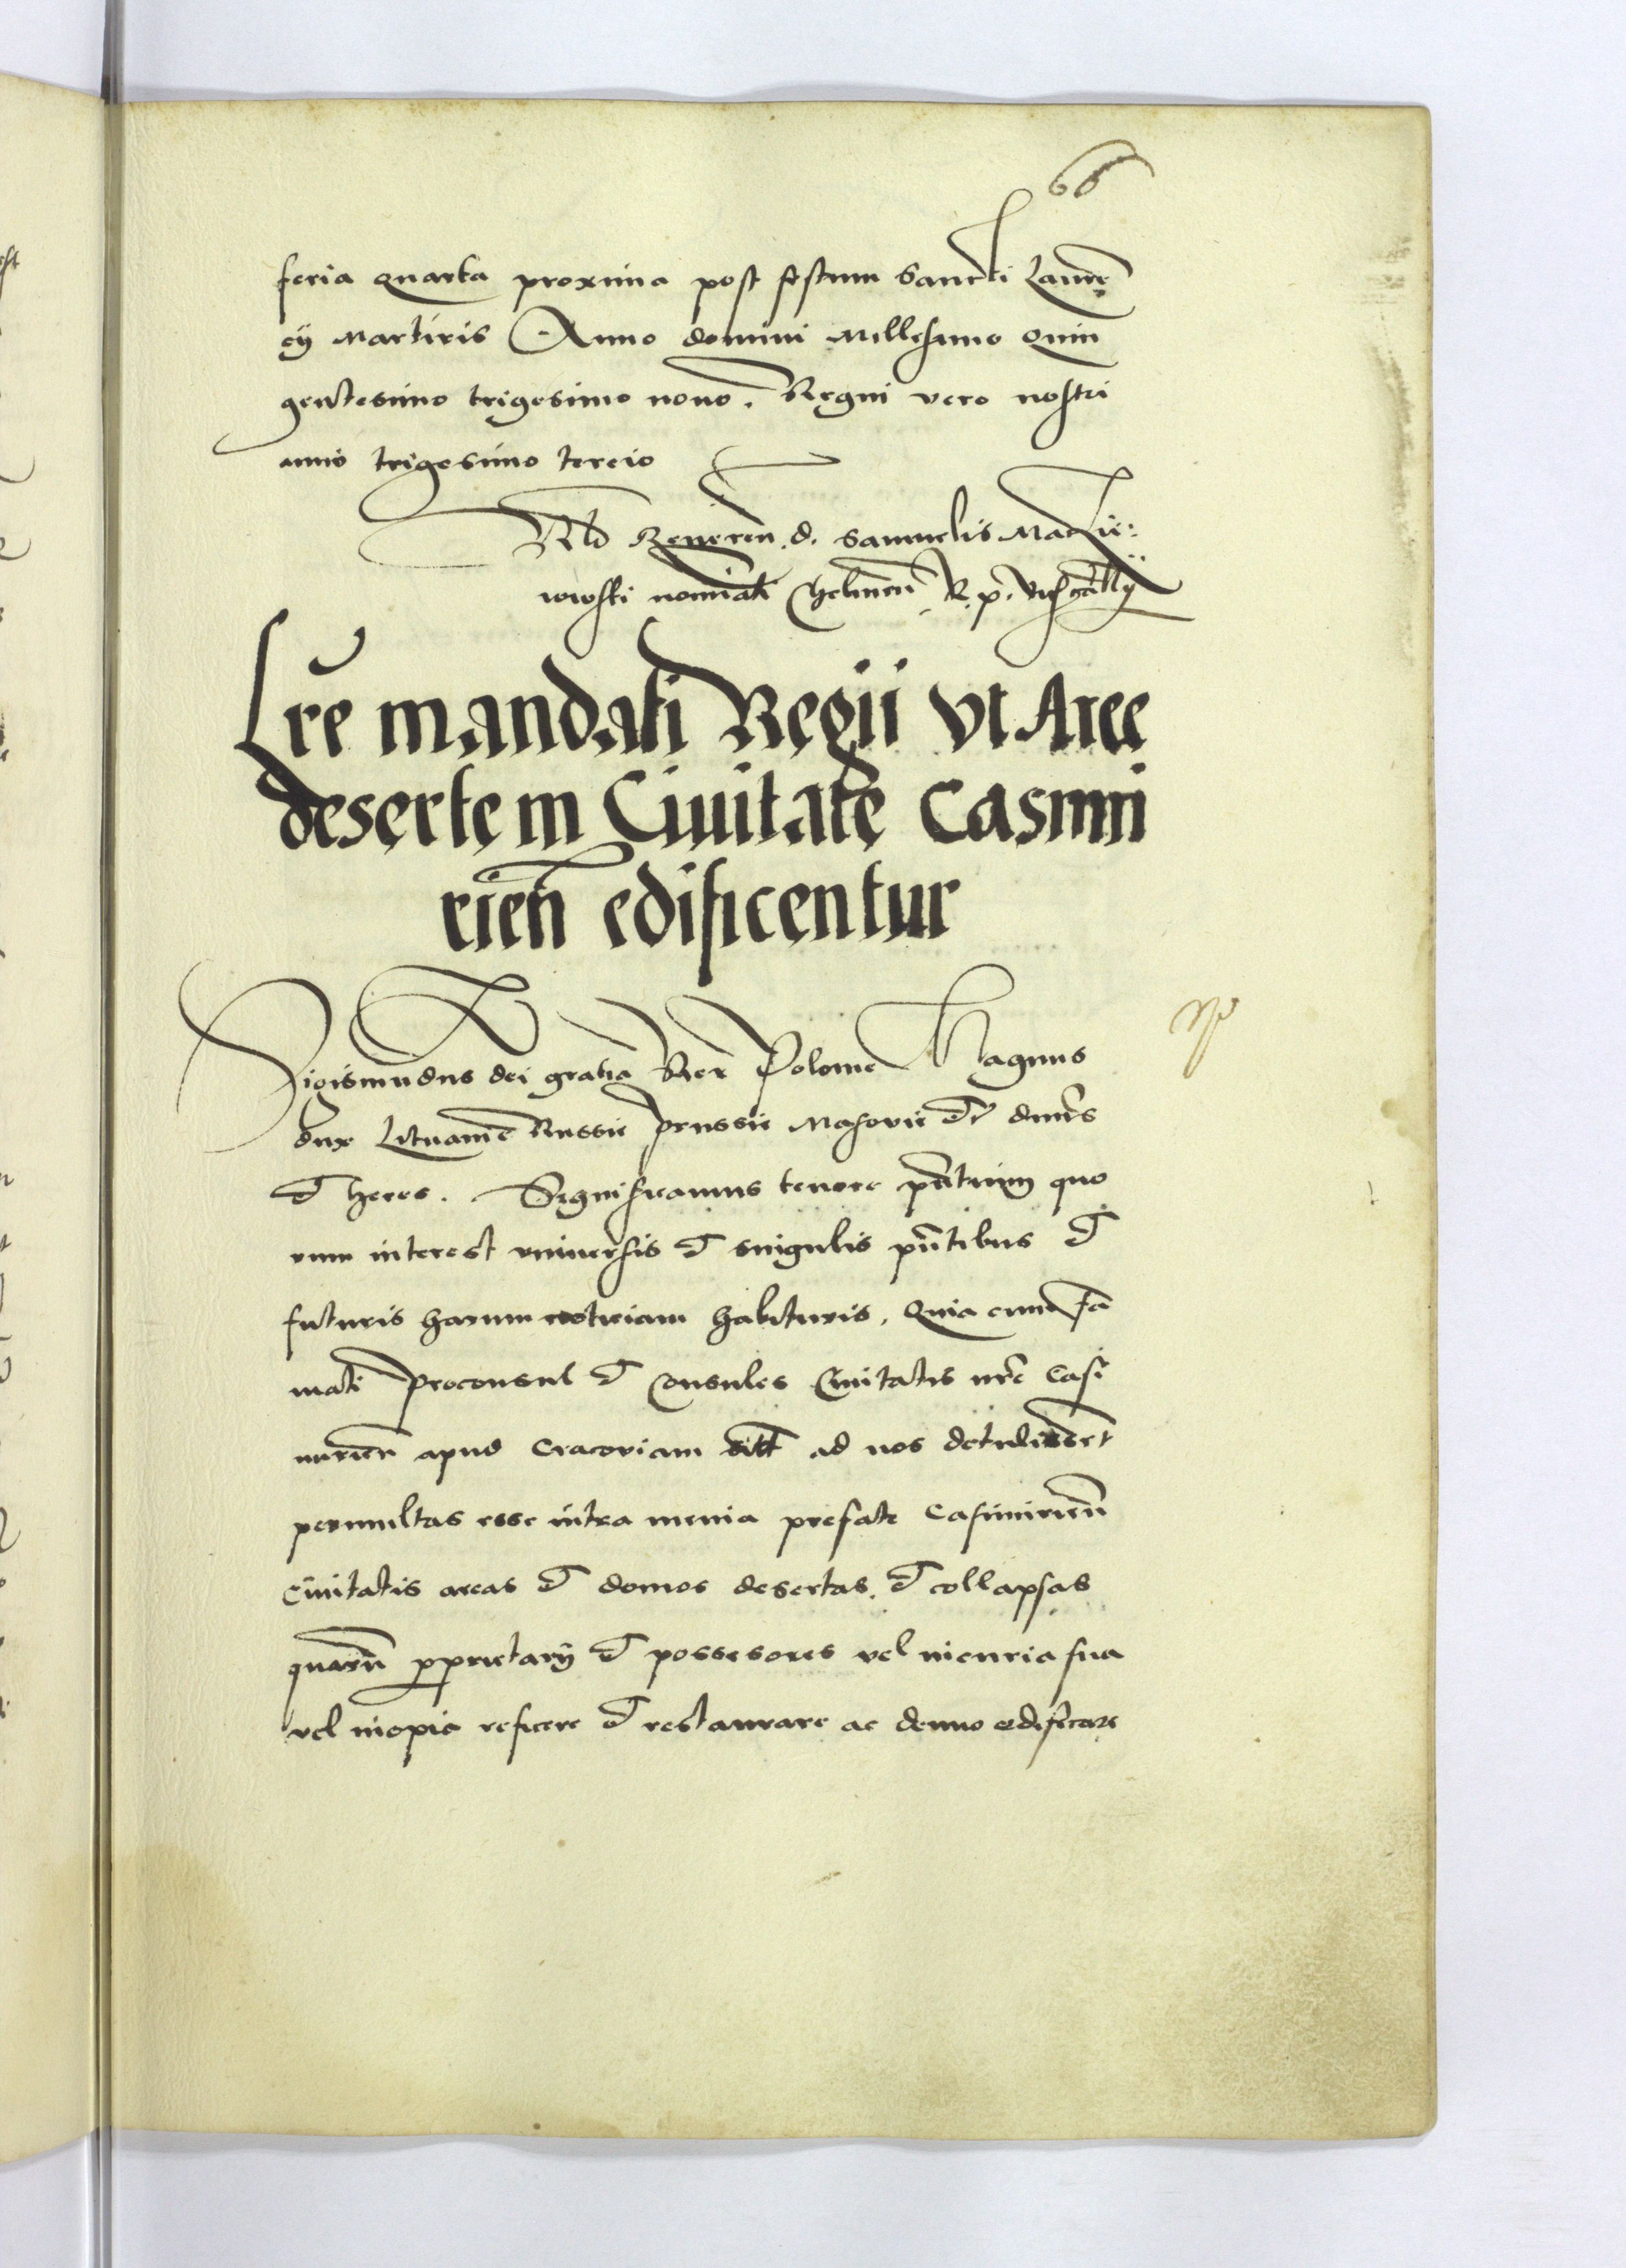 66
feria quarta proxima post festum Sancti Lauren
cij Martiris Anno domini Millesimo quin
gentesimo trigesimo nono. Regni vero nostri
anno trigesimo tercio
Rlo Reveren. d. Samuelis Maczie:
iowski nominati Chelmen R. p. vicecancellarij
Lrē mandati Regii vt Aree
deserte in Ciuitate Casimi
rien̄ edificentur
Sigismūdus dei gratia Rex Polonie Magnus
dux Lituanie Russie Prussie Masovie etc dnūs
et heres. Significamus tenore pn̄tium quo
rum interest vniuersis et singulis pn̄tibus et
futuris harum noticiam habituris, Quia cum fa
mati Proconsul et Consules Ciuitatis nrē Casi
mirien̄ apud Cracoviam ad nos detulissent
permultas esse intra menia prefate Casimirien̄
Ciuitatis areas et domos desertas et collapsas
quarū proprietarij et possesores vel incuria sua
vel inopia reficere et restaurare ac denuo edificare